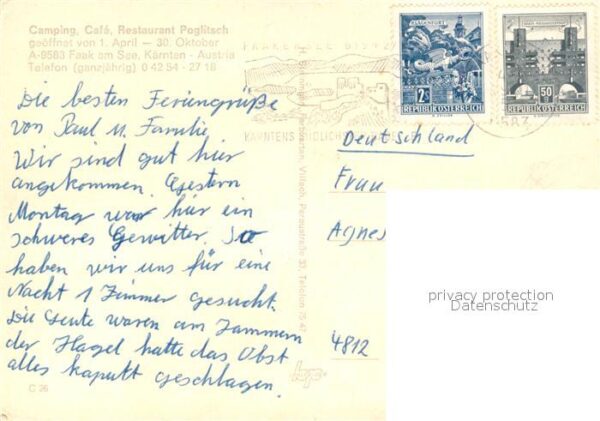 Camping, Café, Restaurant Poglitsch
geöffnet von 1. April — 30. Oktober
A-9583 Faak am See, Kärnten - Austria
Telefon (ganzjährig) 0 42 54 - 27 18
Die besten Feriengrüße
von Paul u. Familie
Wir sind gut hier
angekommen. Gestern
Montag war hier ein
schweres Gewitter. So
haben wir uns für eine
Nacht 1 Zimmer gesucht.
Die Leute waren am Jammern
der Hagel hatte das Obst
alles kaputt geschlagen.
C 26
FAAKER SEE
KÄRNTENS SÜDLICHSTER
Villach, Peraustraße 33, Telefon
KLAGENFURT
2S
REPUBLIK ÖSTERREICH
50
REPUBLIK ÖSTERREICH
Deutschland
Frau
Agnes
4812
privacy protection
Datenschutz